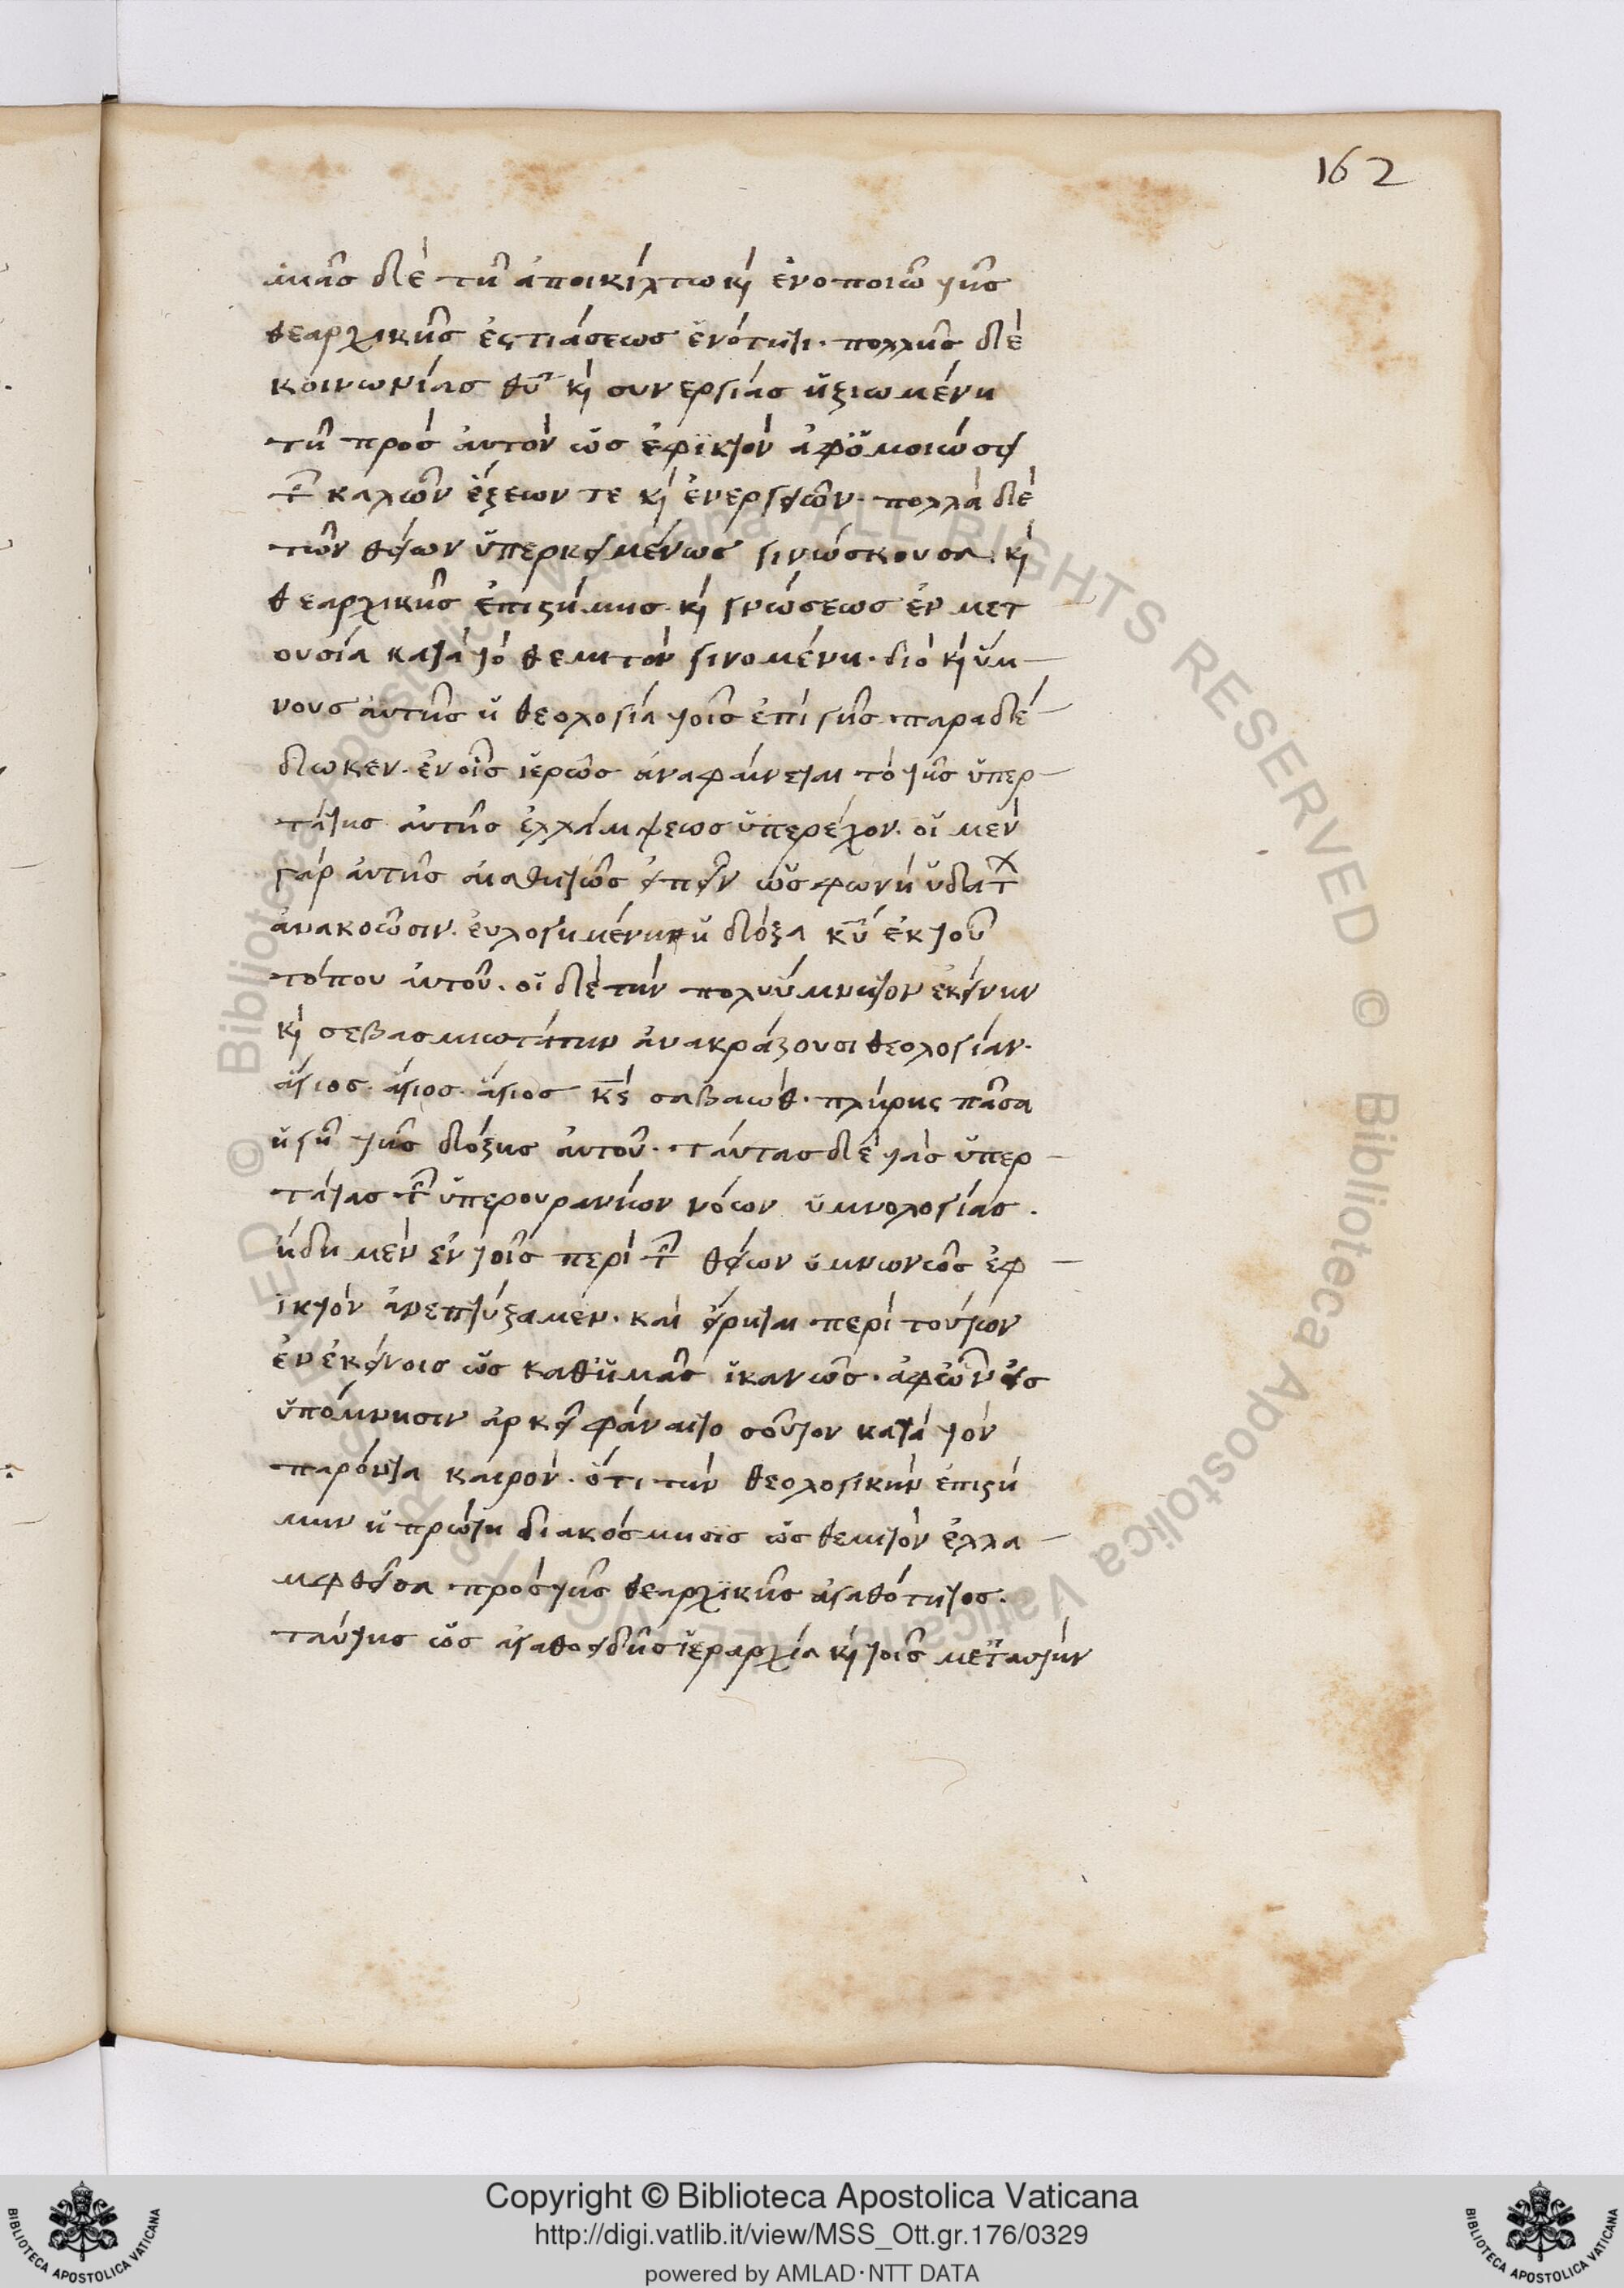 162
μιᾶς δὲ τῇ ἀποικίλτω κὶ ἑνοποιῶ τῆς
θεαρχικῆς ἑστιάσεως ἑνότητι· πολλῆς δὲ
κοινωνίας θυ κὶ συνεργίας ἠξιωμένη
τῇ πρὸς ἀυτὸν ὡς ἐφικτὸν ἀφομοιώσει
τῶν καλῶν ἕξεων τε κὶ ἐνεργειῶν· πολλὰ δὲ
τῶν θείων ὑπερκειμένως γινώσκουσα· κὶ
θεαρχικῆς ἐπιστήμης κὶ γνώσεως ἐν μετ
ουσία κατὰ τὸ θεμιτὸν γινομένη· διὸ κὶ ὕμ
νους ἀυτῆς ἡ θεολογία τοῖς ἐπὶ γῆς παραδέ
δωκεν· ἐν οἷς ἱερῶς ἀναφαίνεται τὸ τῆς ὑπερ
τάτης ἀυτῆς ἐλλάμψεως ὑπερέχον· οἱ μὲν
γὰρ ἀυτῆς αἰσθητῶς εἰπεῖν ὡς φωνὴ ὑδάτων
ἀνακοῶσιν· ἐυλογημένη ἡ δόξα κυ ἐκ τοῦ
τόπου ἀυτοῦ· οἱ δὲ τὴν πολυύμνητον ἐκείνην
κὶ σεβασμιωτάτην ἀνακράζουσι θεολογίαν·
ἅγιος· ἅγιος· ἅγιος κς σαβαώθ· πλήρης πᾶσα
ἡ γῆ τῆς δόξης ἀυτοῦ· ταύτας δὲ τὰς ὑπερ
τάτας τῶν ὑπερουρανίων νόων ὑμνολογίας·
ἤδη μὲν ἐν τοῖς περὶ τῶν θείων ὕμνων ὡς ἐφ
ικτὸν ἀνεπτύξαμεν· καὶ εἴρηται περὶ τούτων
ἐν ἐκείνοις ὡς καθ ἡμᾶς ἱκανῶς· ἀφ ὧν εἰς
ὑπόμνησιν ἀρκεῖ φάναι τοσοῦτον κατὰ τὸν
παρόντα καιρὸν· ὅτι τὴν θεολογικὴν ἐπιστή
μην ἡ πρώτη διακόσμησις ὡς θεμιτὸν ἐλλα
μφθεῖσα πρὸς τῆς θεαρχικῆς ἀγαθότητος·
ταύτης ὡς ἀγαθοειδὴς ἱεραρχία κὶ τοῖς μετ αυτὴν
Copyright © Biblioteca Apostolica Vaticana
http://digi.vatlib.it/view/MSS_Ott.gr.176/0329
powered by AMLAD·NTT DATA